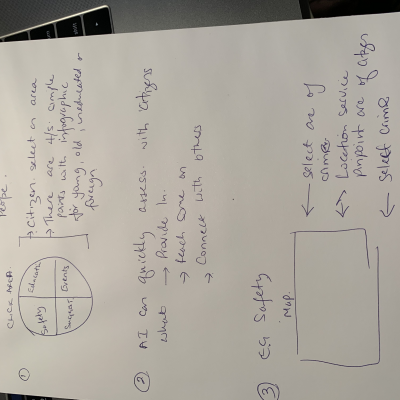 people.
CLICK AREA
①
Educate
Safety
Events
Support
→ Citizen select an area
→ There are 4/5 simple
parts with infographic
for young, old, uneducated or
foreign
② AI can quickly assess with citizens
what → Provide In.
→ Reach some on
→ Connect with others
③ E.G Safety
MAP.
← select are of
crimes
Location service
Pinpoint are of citizen
← select crime